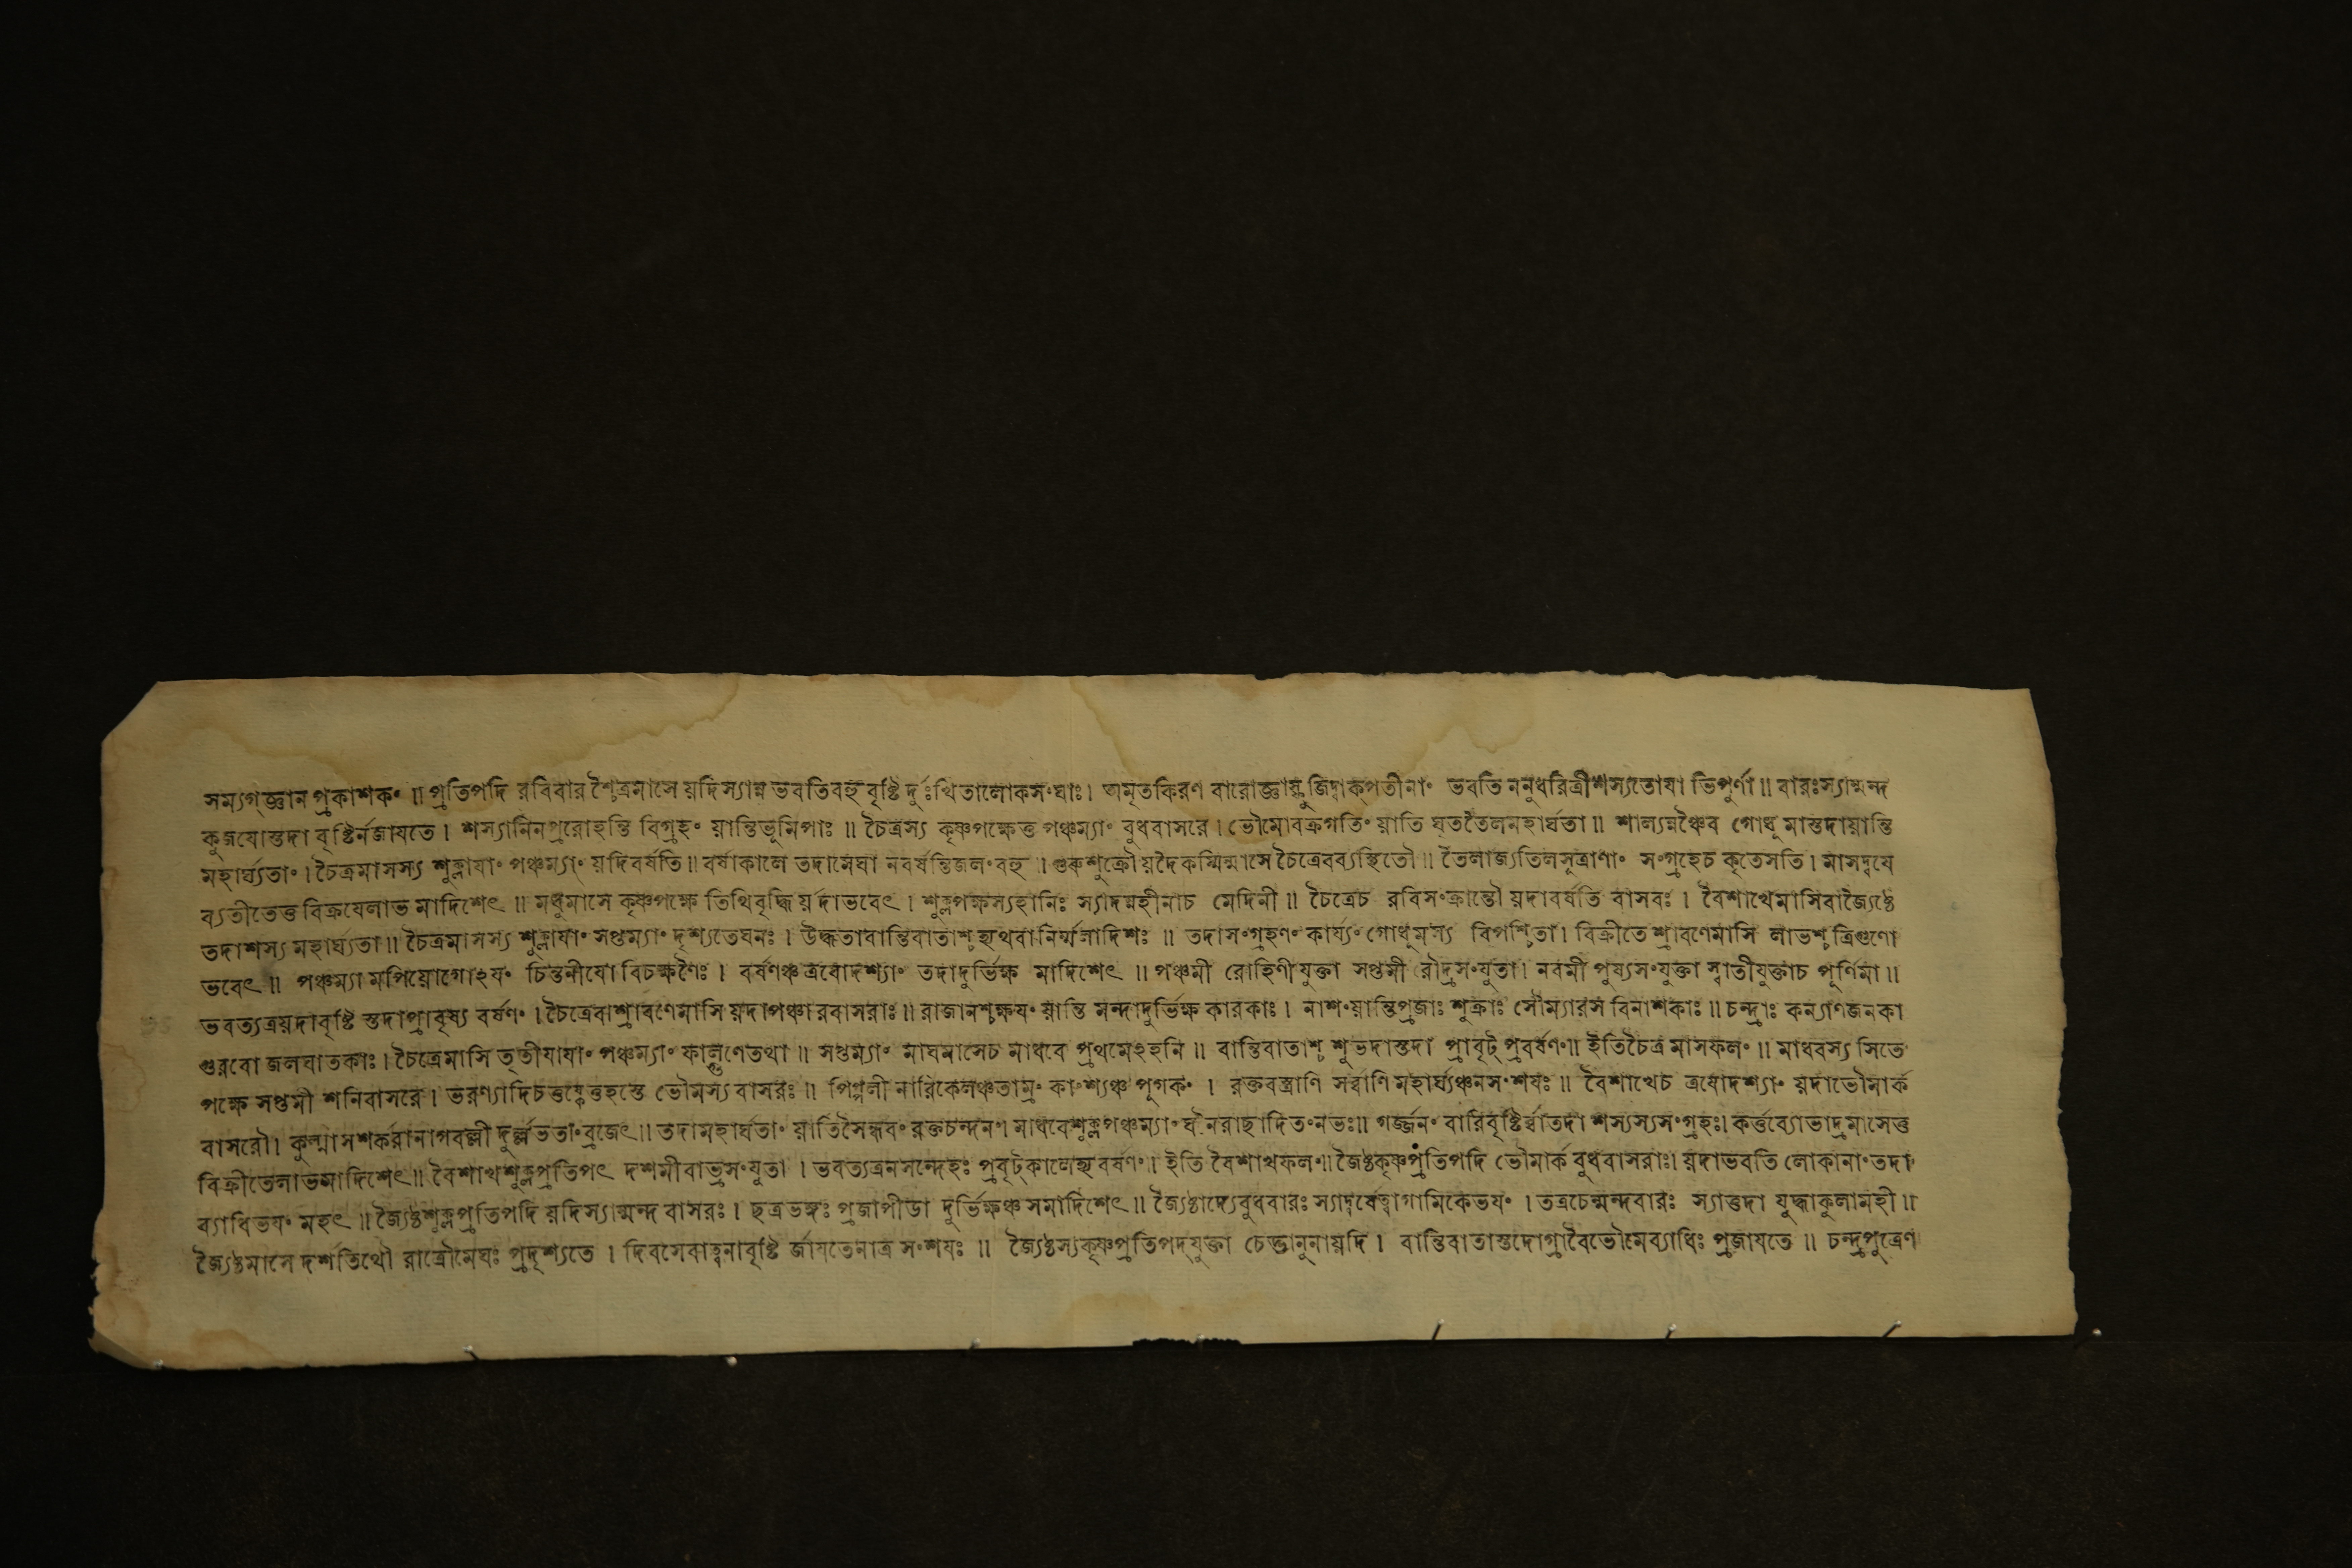 সম্যগ্জ্ঞান প্রকাশকং ॥ প্রতিপদি রবিবার শ্চৈত্রমাসে যদিস্যান্ন ভবতিবহু বৃষ্টি র্দুঃখিতালোকসংঘাঃ। অমৃতকিরণ বারো ভবতি ননুধরিত্রীশস্যতোযা ভিপূর্ণা ॥ বারঃস্যান্মন্দ
কুজযোস্তদা বৃষ্টির্নজাযতে । শস্যানিনপ্ররোহন্তি বিগ্রহং যান্তিভুমিপাঃ ॥ চৈত্রস্য কৃষ্ণপক্ষেতু পঞ্চম্যাং বুধবাসরে । ভৌমোবক্রগতিং যাতি ঘৃততৈলমহার্ঘতা ॥ শাল্যন্নঞ্চৈব গোধুমাস্তদাযান্তি
মহার্ঘ্যতাং । চৈত্রমাসস্য শুক্লাযাং পঞ্চম্যাং যদিবর্ষতি ॥ বর্ষাকালে তদামেঘা নবর্ষন্তিজলংবহু । গুরুশুক্রৌযদৈকস্মিন্মাসে চৈত্রেবব্যস্থিতৌ ॥ তৈলাজ্যতিলসূত্রাণাং সংগ্রহেচ কৃতেসতি । মাসদ্বযে
ব্যতীতেতু বিক্রযেলাভ মাদিশেৎ ॥ মধুমাসে কৃষ্ণপক্ষে তিথিবৃদ্ধি র্যদাভবেৎ । শুক্লপক্ষস্যহানিঃ স্যাদন্নহীনাচ মেদিনী ॥ চৈত্রেচ রবিসংক্রান্তৌ যদাবর্ষতি বাসবঃ । বৈশাখেমাসিবাজ্যৈষ্ঠে
তদাশস্য মহার্ঘ্যতা ॥ চৈত্রমাসস্য শুক্লাযাং সপ্তম্যাং দৃশ্যতেঘনঃ । উদ্ধতাবান্তিবাতাশ্চ হ্যথবানির্ম্মলাদিশঃ ॥ তদাসংগ্রহণং কার্য্যং গোধুমস্য বিপশ্চিতা । বিক্রীতে শ্রাবণেমাসি লাভশ্চ ত্রিগুণো
ভবেৎ ॥ পঞ্চম্যা মপিযোগোঽযং চিন্তনীযো বিচক্ষণৈঃ । বর্ষণঞ্চ ত্রযোদশ্যাং তদাদুর্ভিক্ষ মাদিশেৎ ॥ পঞ্চমী রোহিণীযুক্তা সপ্তমী রৌদ্রসংযুতা । নবমী পুষ্যসংযুক্তা স্বাতীযুক্তাচ পূর্ণিমা ॥
ভবত্যত্রযদাবৃষ্টি স্তদাপ্রাবৃষ্য বর্ষণং । চৈত্রেবাশ্রাবণেমাসি যদাপঞ্চারবাসরাঃ ॥ রাজানশ্চক্ষযং যান্তি মন্দাদুর্ভিক্ষ কারকাঃ । নাশংযান্তিপ্রজাঃ শুক্রাঃ সৌম্যারস বিনাশকাঃ ॥ চন্দ্রাঃ কল্যাণজনকা
গুরবো জলঘাতকাঃ । চৈত্রেমাসি তৃতীযাযাং পঞ্চম্যাং ফাল্গুণেতথা ॥ সপ্তম্যাং মাঘমাসেচ মাধবে প্রথমেঽহনি ॥ বান্তিবাতাশ্চ শুভদাস্তদা প্রাবৃট্ প্রবর্ষণং ॥ ইতিচৈত্র মাসফলং ॥ মাধবস্য সিতে
পক্ষে সপ্তমী শনিবাসরে । ভৌমস্য বাসরঃ ॥ পিপ্পলী নারিকেলঞ্চতাম্রং কাংশ্যঞ্চ পুগকং । রক্তবস্ত্রাণি সর্ব্বাণি মহার্ঘ্যঞ্চনসংশযঃ ॥ বৈশাখেচ ত্রযোদশ্যাং যদাভৌমার্ক
বাসরৌ । কুল্মাসশর্করানাগবল্লী দুর্ল্লভতাংব্রজেৎ ॥ তদামহার্ঘতাং যাতিসৈন্ধবং রক্তচন্দনং । মাধবেশুক্লপঞ্চম্যাং ঘনৈরাছাদিতংনভঃ ॥ গর্জ্জনং বারিবৃষ্টির্ব্বাতদা শস্যস্যসংগ্রহঃ । কর্ত্তব্যোভাদ্রমাসেতু
বিক্রীতেলাভমাদিশেৎ ॥ বৈশাখশুক্লপ্রতিপৎ দশমীবাভ্রসংযুতা । ভবত্যত্রনসন্দেহঃ প্রবৃট্কালেহ্যবর্ষণং ॥ ইতি বৈশাখফলং ॥ জ্যৈষ্ঠকৃষ্ণপ্রতিপদি ভৌমার্ক বুধবাসরাঃ । যদাভবতি লোকানাং তদা
ব্যাধিভযং মহৎ ॥ জ্যৈষ্ঠশুক্লপ্রতিপদি যদিস্যান্মন্দ বাসরঃ । ছত্রভঙ্গঃ প্রজাপীডা দুর্ভিক্ষঞ্চ সমাদিশেৎ ॥ জ্যৈষ্ঠাদ্যেবুধবারঃ স্যাদ্বর্ষেত্বাগামিকেভযং । তত্রচেন্মন্দবারঃ স্যাত্তদা যুদ্ধাকুলামহী ॥
জ্যৈষ্ঠমাসে দর্শতিথৌ রাত্রৌমেঘঃ প্রদৃশ্যতে । দিবসেবাত্বনাবৃষ্টি র্জাযতেনাত্র সংশযঃ ॥ জ্যৈষ্ঠস্যকৃষ্ণপ্রতিপদ্যুক্তা চেদ্ভানুনাযদি । বান্তিবাতাস্তদোগ্রাবৈভৌমেব্যাধিঃ প্রজাযতে ॥ চন্দ্রপুত্রেণ